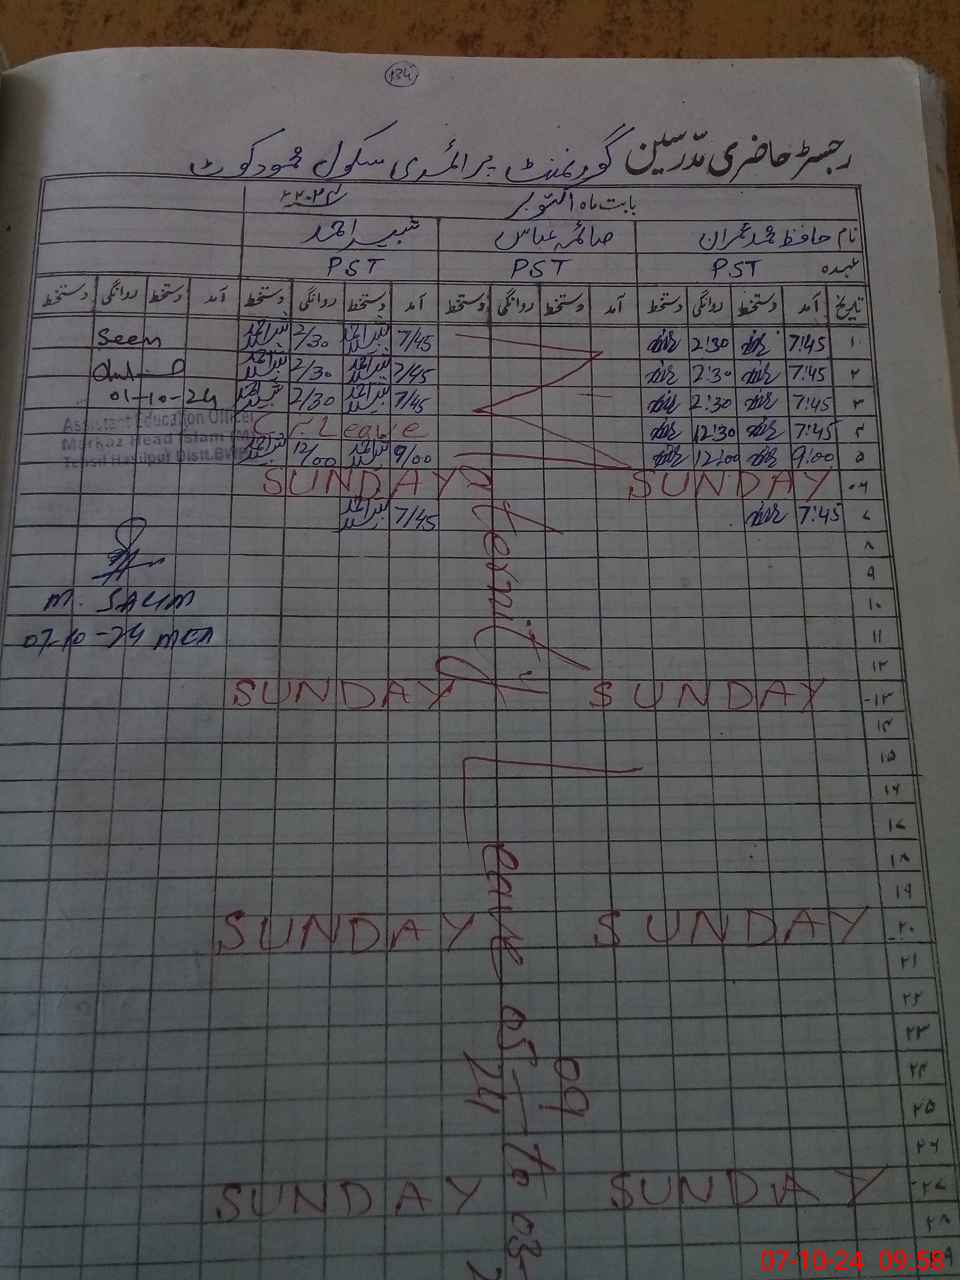 134
رجسٹر حاضری مدرسین گورنمنٹ پرائمری سکول محمود کوٹ
بابت ماہ اکتوبر ۲۰۲۴
نام حافظ محمد عمران صائمہ عباس شبیر احمد
عہدہ PST PST PST
تاریخ آمد دستخط روانگی دستخط آمد دستخط روانگی دستخط آمد دستخط روانگی دستخط آمد دستخط روانگی دستخط
۱ 7:45 2:30 7/45 شبیر احمد 2/30 شبیر احمد Seen
۲ 7:45 2:30 7/45 شبیر احمد 2/30 شبیر احمد
۳ 7:45 2:30 7/45 شبیر احمد 2/30 شبیر احمد 01-10-24
۴ 7:45 12:30 Leave
Assistant Education Officer
Markaz Head Islam (M)
Tehsil Hasilpur Distt. BWP
۵ 9:00 12:00 9/00 شبیر احمد 12/00 شبیر احمد
۰۶ SUNDAY SUNDAY
۷ 7:45 7/45 شبیر احمد
۸
۹
۱۰ M. SALIM
۱۱ 07-10-24 MON
۱۲
۱۳ SUNDAY SUNDAY
۱۴
۱۵
۱۶
۱۷
۱۸
۱۹
۲۰ SUNDAY SUNDAY
۲۱
۲۲
۲۳
۲۴
۲۵
۲۶
۲۷ SUNDAY SUNDAY
۲۸
maternity Leave 05-09-24 to 03-
07-10-24 09:58